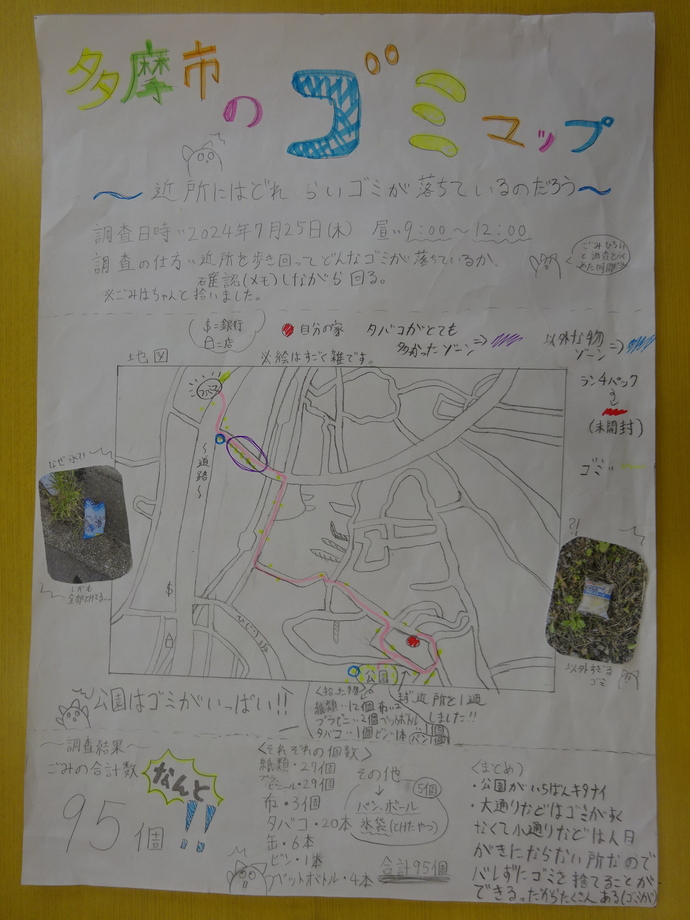 多摩市のゴミマップ
〜近所にはどれ らいゴミが落ちているのだろう〜
調査日時 2024年7月25日(木) 昼 9:00〜12:00
調査の仕方 近所を歩き回ってどんなゴミが落ちているか、
確認(メモ)しながら回る。
※ごみはちゃんと拾いました。
ごみひろい
$=銀行
=店
自分の家
タバコがとても
多かったゾーン⇒
以外な物
ゾーン⇒
地図
※絵はすごく雑です。
ランチパック
(未開封)
ゴミ
〜道路〜
$
公園
なぜ
しかも
!?
以外すぎる
ゴミ
公園はゴミがいっぱい!!
<拾った物>
紙類…12個
プラビニ…2個 ペットボトル
タバコ…1個 ビン1本 パン1個
近所を1週
しました!!
〜調査結果〜
ごみの合計数
なんと
95個!!
<それぞれの個数>
紙類・27個
プラ ビニール・29個
布・3個
タバコ・20本
缶・6本
ビン・1本
ペットボトル・4本
その他
5個
↓
パン、ボール
氷袋(とけたやつ)
合計95個
<まとめ>
・公園がいちばんキタナイ
・大通りなどはゴミがすく
なくて小通りなどは人目
がきにならない所なので
バレずにゴミを捨てることが
できる。だからたくさんある(ゴミが)